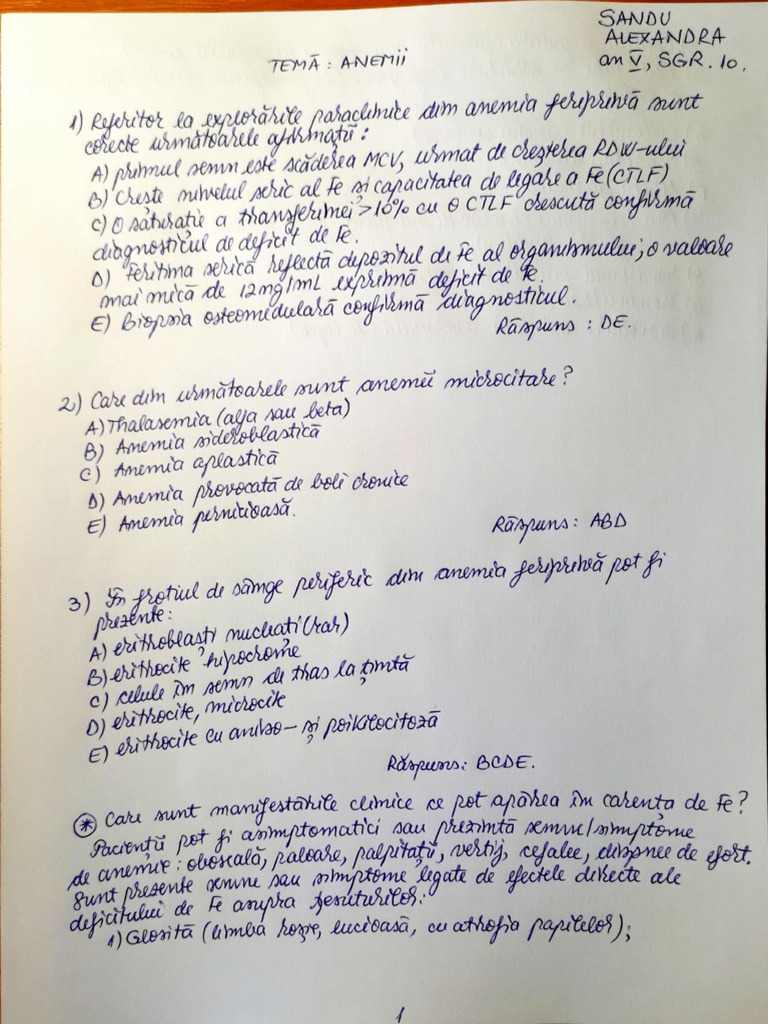 SANDU
ALEXANDRA
an V, SGR. 10.
TEMĂ: ANEMII
1) Referitor la explorările paraclinice din anemia feriprivă sunt
corecte următoarele afirmații:
A) primul semn este scăderea MCV, urmat de creșterea RDW-ului
B) Crește nivelul seric al Fe și capacitatea de legare a Fe (CTLF)
C) O saturație a transferinei >10% cu o CTLF crescută confirmă
diagnosticul de deficit de Fe.
D) Feritina serică reflectă depozitul de Fe al organismului; o valoare
mai mică de 12mg/mL exprimă deficit de Fe.
E) Biopsia osteomedulară confirmă diagnosticul.
Răspuns: DE.
2) Care din următoarele sunt anemii microcitare?
A) Thalasemia (alfa sau beta)
B) Anemia sideroblastică
C) Anemia aplastică
D) Anemia provocată de boli cronice
E) Anemia pernicioasă.
Răspuns: ABD
3) În frotiul de sânge periferic din anemia feriprivă pot fi
prezente:
A) eritroblaști nucleați (rar)
B) eritrocite hipocrome
C) celule în semn de tras la țintă
D) eritrocite, microcite
E) eritrocite cu anizo- și poikilocitoză
Răspuns: BCDE.
* Care sunt manifestările clinice ce pot apărea în carența de Fe?
Pacienții pot fi asimptomatici sau prezintă semne/simptome
de anemie: oboseală, paloare, palpitații, vertij, cefalee, dispnee de efort.
Sunt prezente semne sau simptome legate de efectele directe ale
deficitului de Fe asupra țesuturilor:
1) Glosită (limba roșie, lucioasă, cu atrofia papilelor);
1